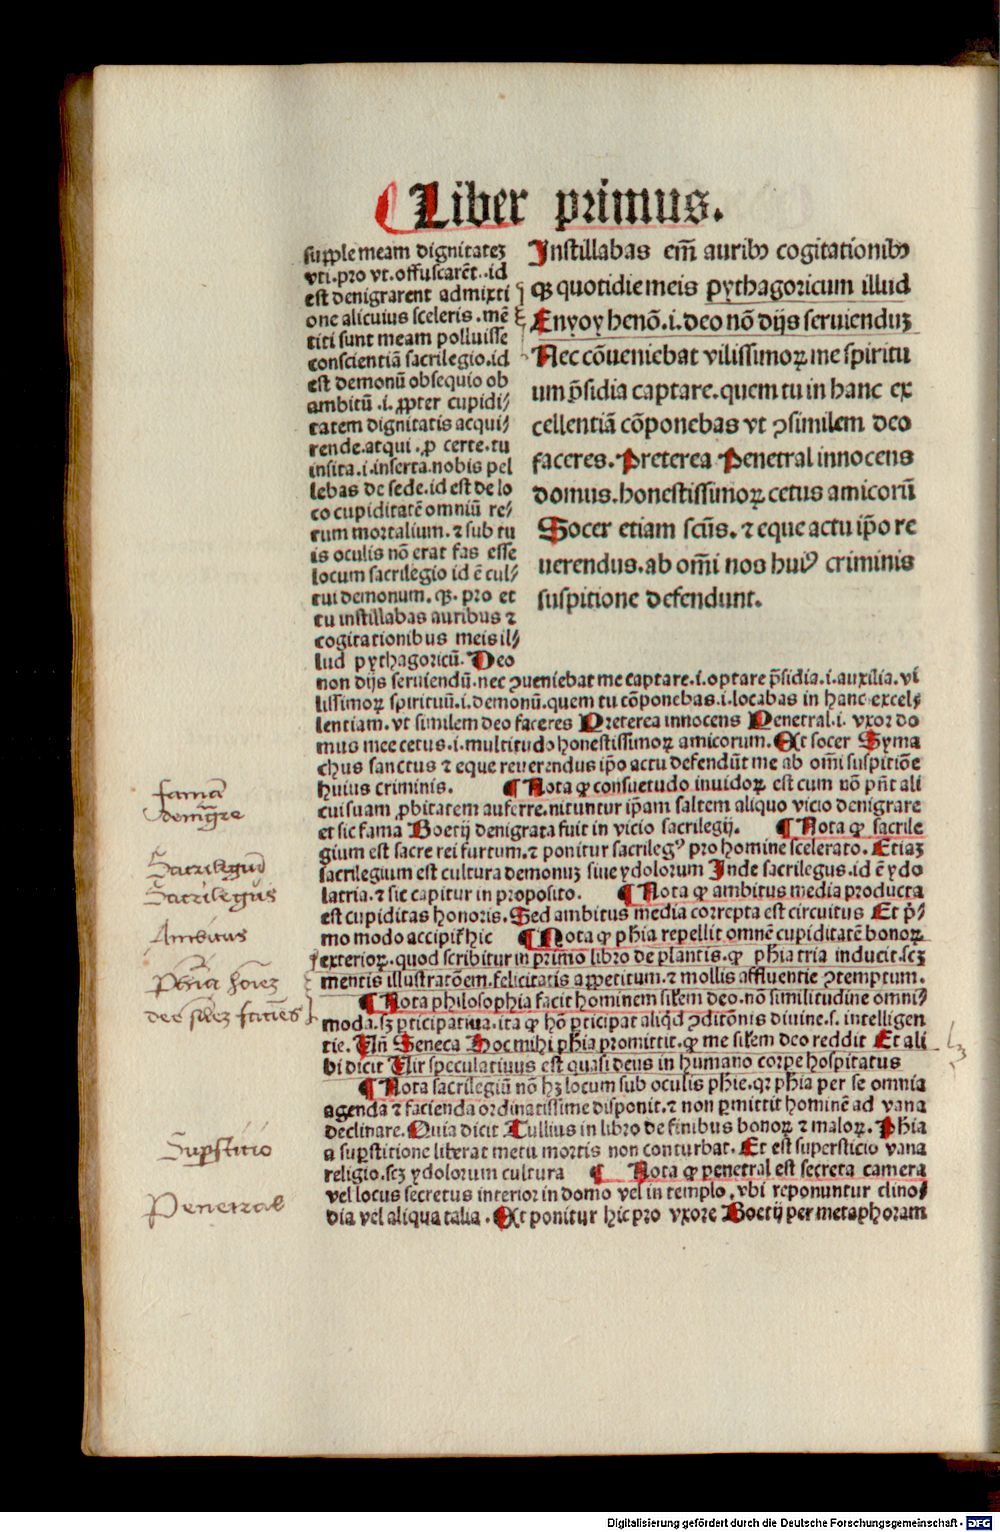 Liber primus.
Instillabas em̄ auribꝰ cogitationibꝰ
qꝫ quotidie meis pythagoricum illud
Enyoy henō.i.deo nō dijs seruienduꝫ
Nec cōueniebat vilissimoꝝ me spiritu
um p̄sidia captare.quem tu in hanc ex
cellentiā cōponebas vt ꝯsimilem deo
faceres.Preterea Penetral innocens
domus.honestissimoꝝ cetus amicorū
Socer etiam scūs.⁊ eque actu ip̄o re
uerendus.ab om̄i nos huiꝰ criminis
suspitione defendunt.
suꝓple meam dignitateꝫ
vti.pro vt.offuscarēt.id
est denigrarent admixti
one alicuius sceleris.mē
titi sunt meam polluisse
conscientiā sacrilegio.id
est demonū obsequio ob
ambitū .i.ꝓpter cupidi/
tatem dignitatis acqui/
rende.atqui .ꝓ certe.tu
insita.i.inserta.nobis pel
lebas de sede.id est de lo
co cupiditatē omniū re/
rum mortalium.⁊ sub tu
is oculis nō erat fas esse
locum sacrilegio id ē cul/
tui demonum.qꝫ. pro et
tu instillabas auribus ⁊
cogitationibus meis il/
lud pythagoricū. Deo
non dijs seruiendū.nec ꝯueniebat me captare.i.optare p̄sidia.i.auxilia.vi
lissimoꝝ spirituū.i.demonū.quem tu cōponebas.i.locabas in hanc excel/
lentiam.vt similem deo faceres Preterea innocens Penetral.i. vxor do
mus mee cetus.i.multitudo honestissimoꝝ amicorum.Et socer Syma
chus sanctus ⁊ eque reuerendus ip̄o actu defendūt me ab om̄i suspitiōe
huius criminis. ¶ Nota ꝙ consuetudo inuidoꝝ est cum nō pn̄t ali
cui suam ꝓbitatem auferre.nituntur ip̄am saltem aliquo vicio denigrare
et sic fama Boetij denigrata fuit in vicio sacrilegij. ¶ Nota ꝙ sacrile
gium est sacre rei furtum.⁊ ponitur sacrilegꝰ pro homine scelerato. Etiaꝫ
sacrilegium est cultura demonuꝫ siue ydolorum Inde sacrilegus.id ē ydo
latria.⁊ sic capitur in proposito. ¶ Nota ꝙ ambitus media producta
est cupiditas honoris.Sed ambitus media correpta est circuitus Et p̄/
mo modo accipit̄ hic ¶ Nota ꝙ phīa repellit omnē cupiditatē bonoꝝ
exterioꝝ.quod scribitur in primo libro de plantis.ꝙ phīa tria inducit.scꝫ
mentis illustratōem.felicitatis appetitum.⁊ mollis affluentie ꝯtemptum.
¶ Nota philosophia facit hominem silem deo.nō similitudine omni/
moda.sꝫ ꝑticipatiua.ita ꝙ hō ꝑticipat aliqd ꝯditōnis diuine.s. intelligen
tie. Vn̄ Seneca Hoc mihi phīa promittit.ꝙ me silem deo reddit Et ali
bi dicit Vir speculatiuus est quasi deus in humano corpe hospitatus
¶ Nota sacrilegiū nō hꝫ locum sub oculis phīe.qꝛ phīa per se omnia
agenda ⁊ facienda ordinatissime disponit.⁊ non ꝑmittit hominē ad vana
declinare.Quia dicit Tullius in libro de finibus bonoꝝ ⁊ maloꝝ. Phīa
a suꝑstitione liberat metu mortis non conturbat. Et est supersticio vana
religio.scꝫ ydolorum cultura ¶ Nota ꝙ penetral est secreta camera
vel locus secretus interior in domo vel in templo.vbi reponuntur clino/
dia vel aliqua talia .Et ponitur hic pro vxore Boetij per metaphoram
famā
denigre
Sacrilegiū
Sacrilegus
Ambitus
Phīa hōieꝫ
deo silēꝫ
Supstitio
Penetral
Digitalisierung gefördert durch die Deutsche Forschungsgemeinschaft - DFG